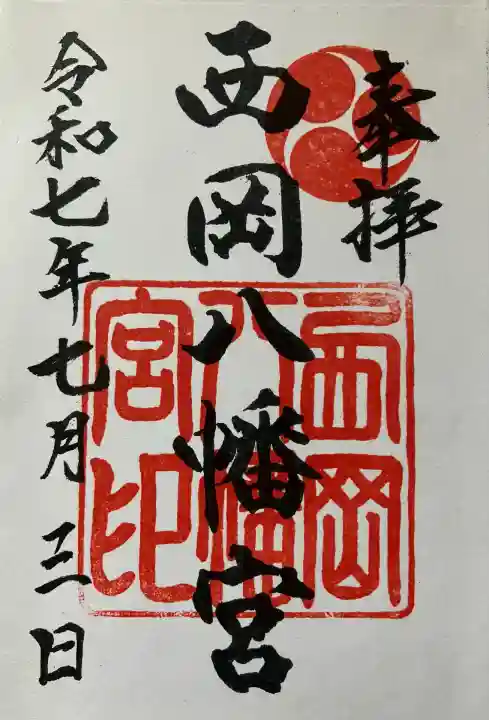 奉拝
西岡八幡宮
令和七年七月三日
西岡
八幡
宮印